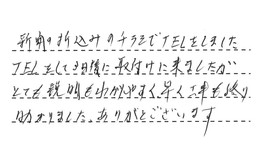 新聞の折込みのチラシでTELをしました
TELをして3日後に取付けに来ましたが
とても説明も分かりやすく早く工事も終り
助かりました。ありがとうございます